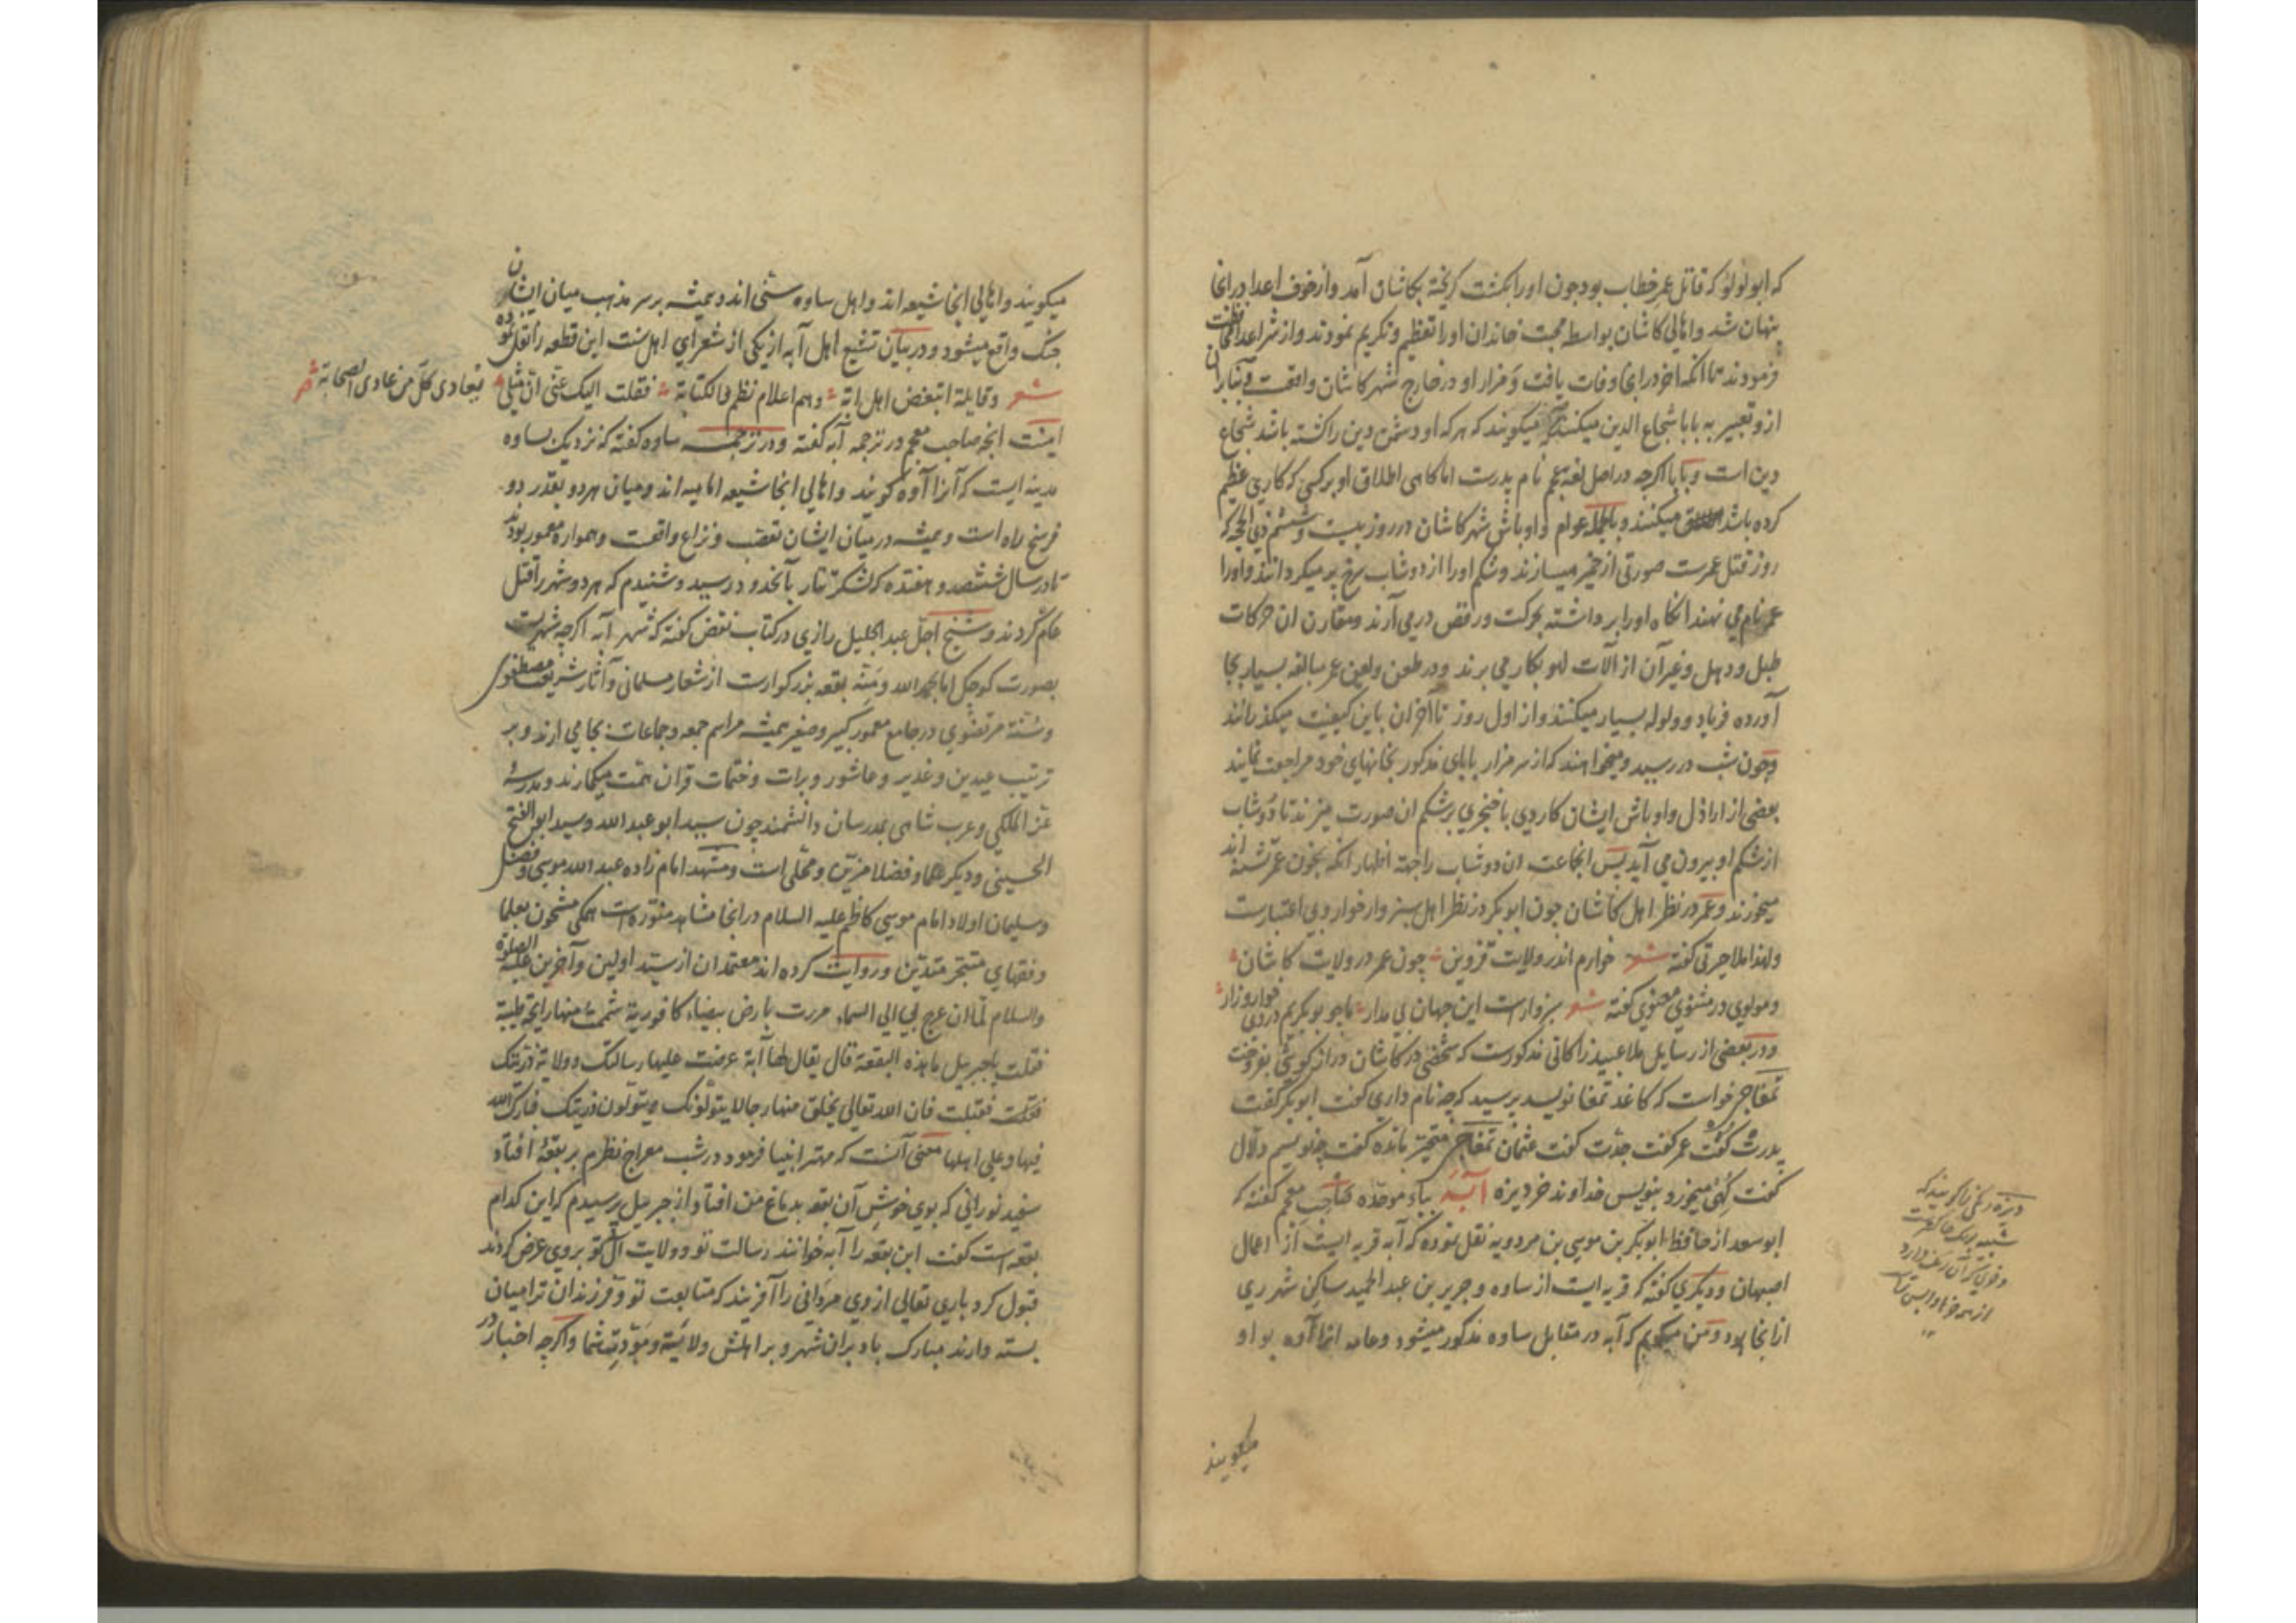 که ابولولو که قاتل عمر خطاب بود چون او را بکشت کریخته بکاشان آمد و از خوف اعدا در آنجا
پنهان شد و اهالی کاشان بواسطه محبت خاندان او را تعظیم و تکریم نمودند و از شر اعدا محافظت
فرمودند تا آنکه اخر در آنجا وفات یافت و مزار او در خارج شهر کاشان واقعست و بنابران
از و تعبیر به بابا شجاع الدین میکنند میکویند که هر که او دشمن دین را کشته باشد شجاع
دین است و بابا اکرچه در اصل لغة عجم نام پدرست اما کاهی اطلاق او بر کسی که کاری عظیم
کرده باشد میکنند و بالجمله عوام و اوباش شهر کاشان در روز بیست و ششم ذی الحجه که
روز قتل عمرست صورتی از خمیر میسازند و شکم او را از دوشاب سرخ پر میکردانند و او را
عمر نام می نهند انکاه او را برداشته بحرکت و رقص در می آرند و مقارن ان حرکات
طبل و دهل و غیر آن از آلات لهو بکار می برند و در طعن و لعن عمر مبالغه بسیار بجا
آورده فریاد و ولوله بسیار میکنند و از اول روز تا آخر ان باین کیفیت میکذرانند
و چون شب در رسید و میخواهند که از سر مزار بابای مذکور بخانهای خود مراجعت نمایند
بعضی از اراذل و اوباش ایشان کاردی یا خنجری بر شکم ان صورت میزنند تا دوشاب
از شکم او بیرون می آید پس انجماعت ان دوشاب را جهة اظهار انکه بخون عمر تشنه اند
میخورند و عمر در نظر اهل کاشان چون ابوبکر در نظر اهل سبزوار خوار و بی اعتبارست
ولهذا ملا حیرتی کفته شعر خوارم اندر ولایت قزوین چون عمر در ولایت کاشان
و مولوی در مثنوی معنوی کفته شعر سبزوارست این جهان بی مدار ما چو بوبکریم در وی خوار و زار
و در بعضی از رسایل ملا عبید زاکانی مذکورست که شخصی در کاشان درازکوشی بفروخت
تمغاچی خواست که کاغذ تمغا نویسد پرسید که چه نام داری کفت ابوبکر کفت
پدرت کفت عمر کفت جدت کفت عثمان تمغاچی متحیر بانده کفت چنویسم دلال
کفت کهی میخور و بنویس خداوند خر دیزه آبه بباء موحده صاحب معجم کفته که
ابوسعد از حافظ ابوبکر بن موسی بن مردویه نقل نموده که آبه قریه ایست از اعمال
اصبهان و دیکری کفته که قریه ایست از ساوه و جریر بن عبد الحمید ساکن شهر ری
از انجا بود و من میکویم که آبه در مقابل ساوه مذکور میشود و عامه انرا آوه بواو
میکویند
دیزه رنکی را کویند که
میکویند و اهالی انجا شیعه اند و اهل ساوه سنی اند و همیشه بر سر مذهب میان ایشان
جنک واقع میشود و در بیان تشیع اهل آبه از یکی از شعرای اهل سنت این قطعه را نقل نموده
شعر وقایلة اتبغض اهل ابه وهم اعلام نظم والکتابة فقلت الیک عنی ان مثلی یعادی کل من عادی الصحابة
اینست انچه صاحب معجم در ترجمه آبه کفته و در ترجمه ساوه کفته که نزدیک بساوه
مدینه ایست که آنرا آوه کویند و اهالی انجا شیعه امامیه اند و میان هر دو بقدر دو
فرسخ راه است و همیشه در میان ایشان تعصب و نزاع واقعست و همواره معمور بودند
تا در سال ششصد و هفده که لشکر تتار بآنحدود رسید و شنیدم که هر دو شهر را قتل
عام کردند و شیخ اجل عبد الجلیل رازی در کتاب نقض کفته که شهر آبه اکرچه شهریست
بصورت کوچک اما بحمد الله و منه بقعه بزرکوارست از شعار مسلمانی و آثار شریعت مصطفوی
و سنة مرتضوی در جامع معمور کبیر و صغیر همیشه مراسم جمعه و جماعات بجا می ارند و بر
ترتیب عیدین و غدیر و عاشور و برات و ختمات قران همت میکمارند و مدرسه
عز الملکی و عرب شاهی بمدرسان دانشمند چون سید ابو عبد الله و سید ابو الفتح
الحسینی و دیکر علما و فضلا مزین و محلی است و مشهد امام زاده عبد الله موسی و فضل
و سلیمان اولاد امام موسی کاظم علیه السلام در انجا مشاهد منوره است همکی مشحون بعلما
و فقهای متبحر متدین و روایت کرده اند معتمدان از سید اولین و آخرین علیه الصلوة
والسلام لما ان عرج بی الی السماء مررت بارض بیضاء کافوریة شممت منها رایحة طیبة
فقلت یا جبریل ما هذه البقعة قال یقال لها آبة عرضت علیها رسالتک و ولایة ذریتک
فقبلت فان الله تعالی یخلق منها رجالا یتولونک و یتولون ذریتک فبارک الله
فیها و علی اهلها معنی آنست که مهتر انبیا فرمود در شب معراج نظرم بر بقعه افتاد
سفید نورانی که بوی خوش آن بقعه بدماغ من افتاد از جبریل پرسیدم که این کدام
بقعه است کفت این بقعه را آبه خوانند رسالت تو و ولایت آل تو بر وی عرض کردند
قبول کرد باری تعالی از وی مردانی را آفریند که متابعت تو و فرزندان ترا میان
بسته دارند مبارک باد بران شهر و بر اهلش ولایة و مودت شما و اکرچه اخبار در